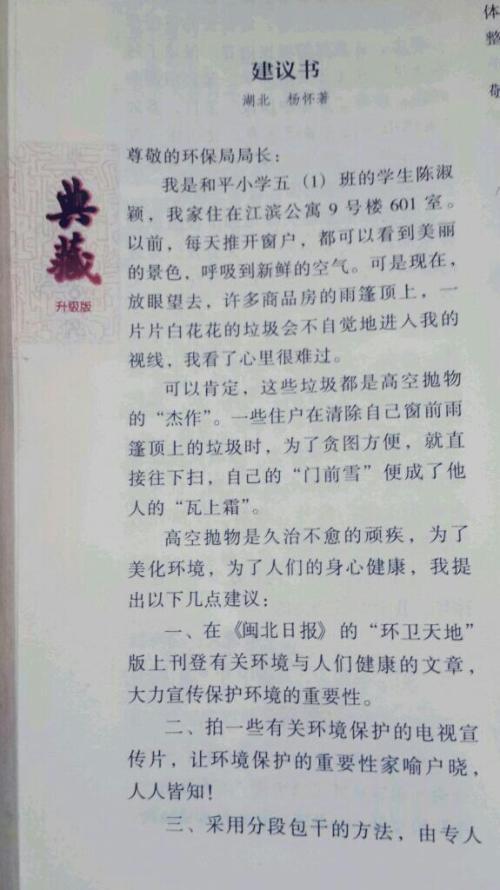 建议书
湖北 杨怀著
尊敬的环保局局长：
我是和平小学五（1）班的学生陈淑
颖，我家住在江滨公寓9号楼601室。
以前，每天推开窗户，都可以看到美丽
的景色，呼吸到新鲜的空气。可是现在，
放眼望去，许多商品房的雨篷顶上，一
片片白花花的垃圾会不自觉地进入我的
视线，我看了心里很难过。
可以肯定，这些垃圾都是高空抛物
的“杰作”。一些住户在清除自己窗前雨
篷顶上的垃圾时，为了贪图方便，就直
接往下扫，自己的“门前雪”便成了他
人的“瓦上霜”。
高空抛物是久治不愈的顽疾，为了
美化环境，为了人们的身心健康，我提
出以下几点建议：
一、在《闽北日报》的“环卫天地”
版上刊登有关环境与人们健康的文章，
大力宣传保护环境的重要性。
二、拍一些有关环境保护的电视宣
传片，让环境保护的重要性家喻户晓，
人人皆知！
三、采用分段包干的方法，由专人
典藏
升级版
体
整